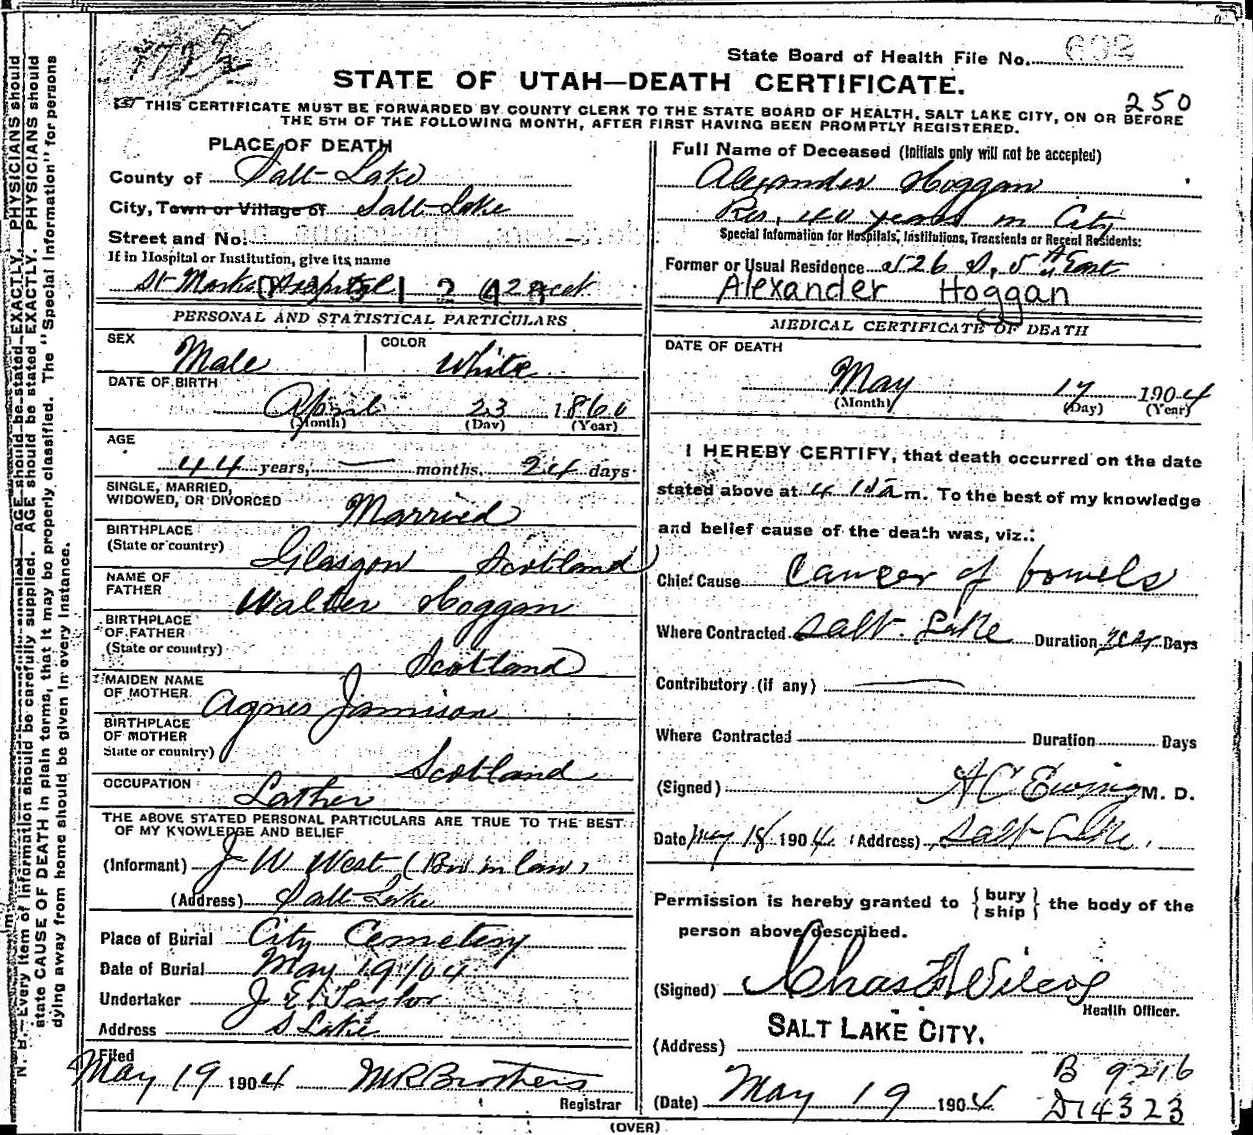 State Board of Health File No. 602
STATE OF UTAH—DEATH CERTIFICATE.
250
THIS CERTIFICATE MUST BE FORWARDED BY COUNTY CLERK TO THE STATE BOARD OF HEALTH, SALT LAKE CITY, ON OR BEFORE
THE 5TH OF THE FOLLOWING MONTH, AFTER FIRST HAVING BEEN PROMPTLY REGISTERED.
PLACE OF DEATH
County of Salt Lake
City, Town or Village of Salt Lake
Street and No.
If in Hospital or Institution, give its name
St Marks Hospital
PERSONAL AND STATISTICAL PARTICULARS
SEX Male COLOR White
DATE OF BIRTH
April 23 1860
(Month) (Day) (Year)
AGE
44 years, — months, 24 days
SINGLE, MARRIED,
WIDOWED, OR DIVORCED Married
BIRTHPLACE
(State or country) Glasgow Scotland
NAME OF
FATHER Walter Hoggan
BIRTHPLACE
OF FATHER
(State or country) Scotland
MAIDEN NAME
OF MOTHER Agnes Jamison
BIRTHPLACE
OF MOTHER
State or country) Scotland
OCCUPATION Lather
THE ABOVE STATED PERSONAL PARTICULARS ARE TRUE TO THE BEST
OF MY KNOWLEDGE AND BELIEF
(Informant) J W West (Bro in law)
(Address) Salt Lake
Place of Burial City Cemetery
Date of Burial May 19/04
Undertaker J E Taylor
Address S Lake
Filed
May 19 1904 M R Brothers
Registrar
Full Name of Deceased (Initials only will not be accepted)
Alexander Hoggan
Res. 40 years in City
Special Information for Hospitals, Institutions, Transients or Recent Residents:
Former or Usual Residence 526 S, 5th East
Alexander Hoggan
MEDICAL CERTIFICATE OF DEATH
DATE OF DEATH
May 17 1904
(Month) (Day) (Year)
I HEREBY CERTIFY, that death occurred on the date
stated above at 4 a m. To the best of my knowledge
and belief cause of the death was, viz.:
Chief Cause Cancer of bowels
Where Contracted Salt Lake Duration year Days
Contributory (if any) —
Where Contracted Duration Days
(Signed) A C Ewing M. D.
Date May 18 1904 (Address) Salt Lake.
Permission is hereby granted to { bury ship } the body of the
person above described.
(Signed) Chas Wilcox
Health Officer.
(Address) SALT LAKE CITY.
B 9216
(Date) May 19 1904 D14323
(OVER)
N. B.—Every item of information should be carefully supplied. AGE should be stated EXACTLY. PHYSICIANS should
state CAUSE OF DEATH in plain terms, that it may be properly classified. The "Special Information" for persons
dying away from home should be given in every instance.